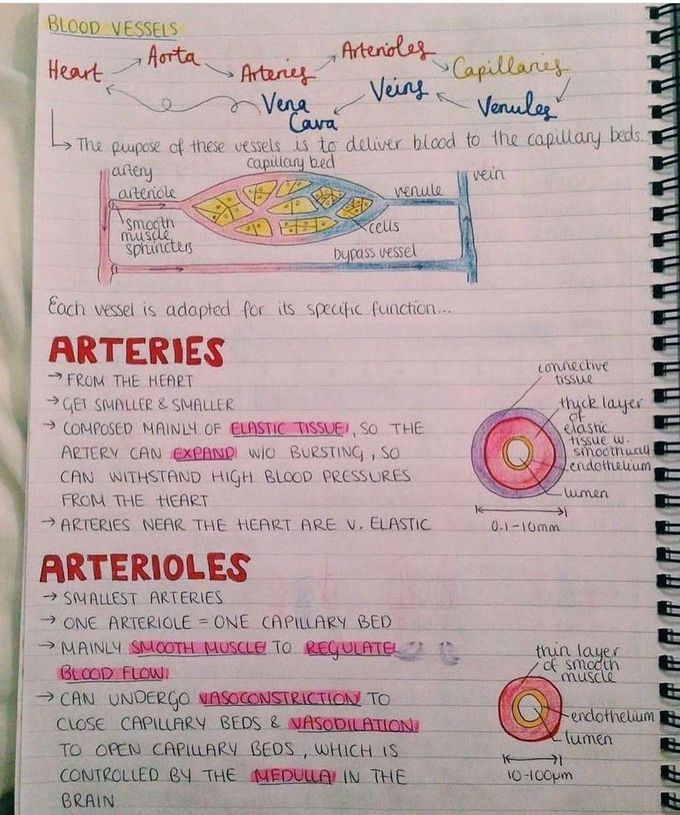 BLOOD VESSELS
Heart → Aorta → Arteries → Arterioles → Capillaries
Vena Cava ← Veins ← Venules
→ The purpose of these vessels is to deliver blood to the capillary beds.
artery
capillary bed
vein
arteriole
venule
smooth
muscle
sphincters
cells
bypass vessel
Each vessel is adapted for its specific function...
ARTERIES
→ FROM THE HEART
→ GET SMALLER & SMALLER
→ COMPOSED MAINLY OF ELASTIC TISSUE, SO THE
ARTERY CAN EXPAND W/O BURSTING, SO
CAN WITHSTAND HIGH BLOOD PRESSURES
FROM THE HEART
→ ARTERIES NEAR THE HEART ARE V. ELASTIC
connective
tissue
thick layer
of
elastic
tissue w.
smooth wall
endothelium
lumen
0.1-10mm
ARTERIOLES
→ SMALLEST ARTERIES
→ ONE ARTERIOLE = ONE CAPILLARY BED
→ MAINLY SMOOTH MUSCLE TO REGULATE
BLOOD FLOW
→ CAN UNDERGO VASOCONSTRICTION TO
CLOSE CAPILLARY BEDS & VASODILATION
TO OPEN CAPILLARY BEDS, WHICH IS
CONTROLLED BY THE MEDULLA IN THE
BRAIN
thin layer
of smooth
muscle
endothelium
lumen
10-100µm